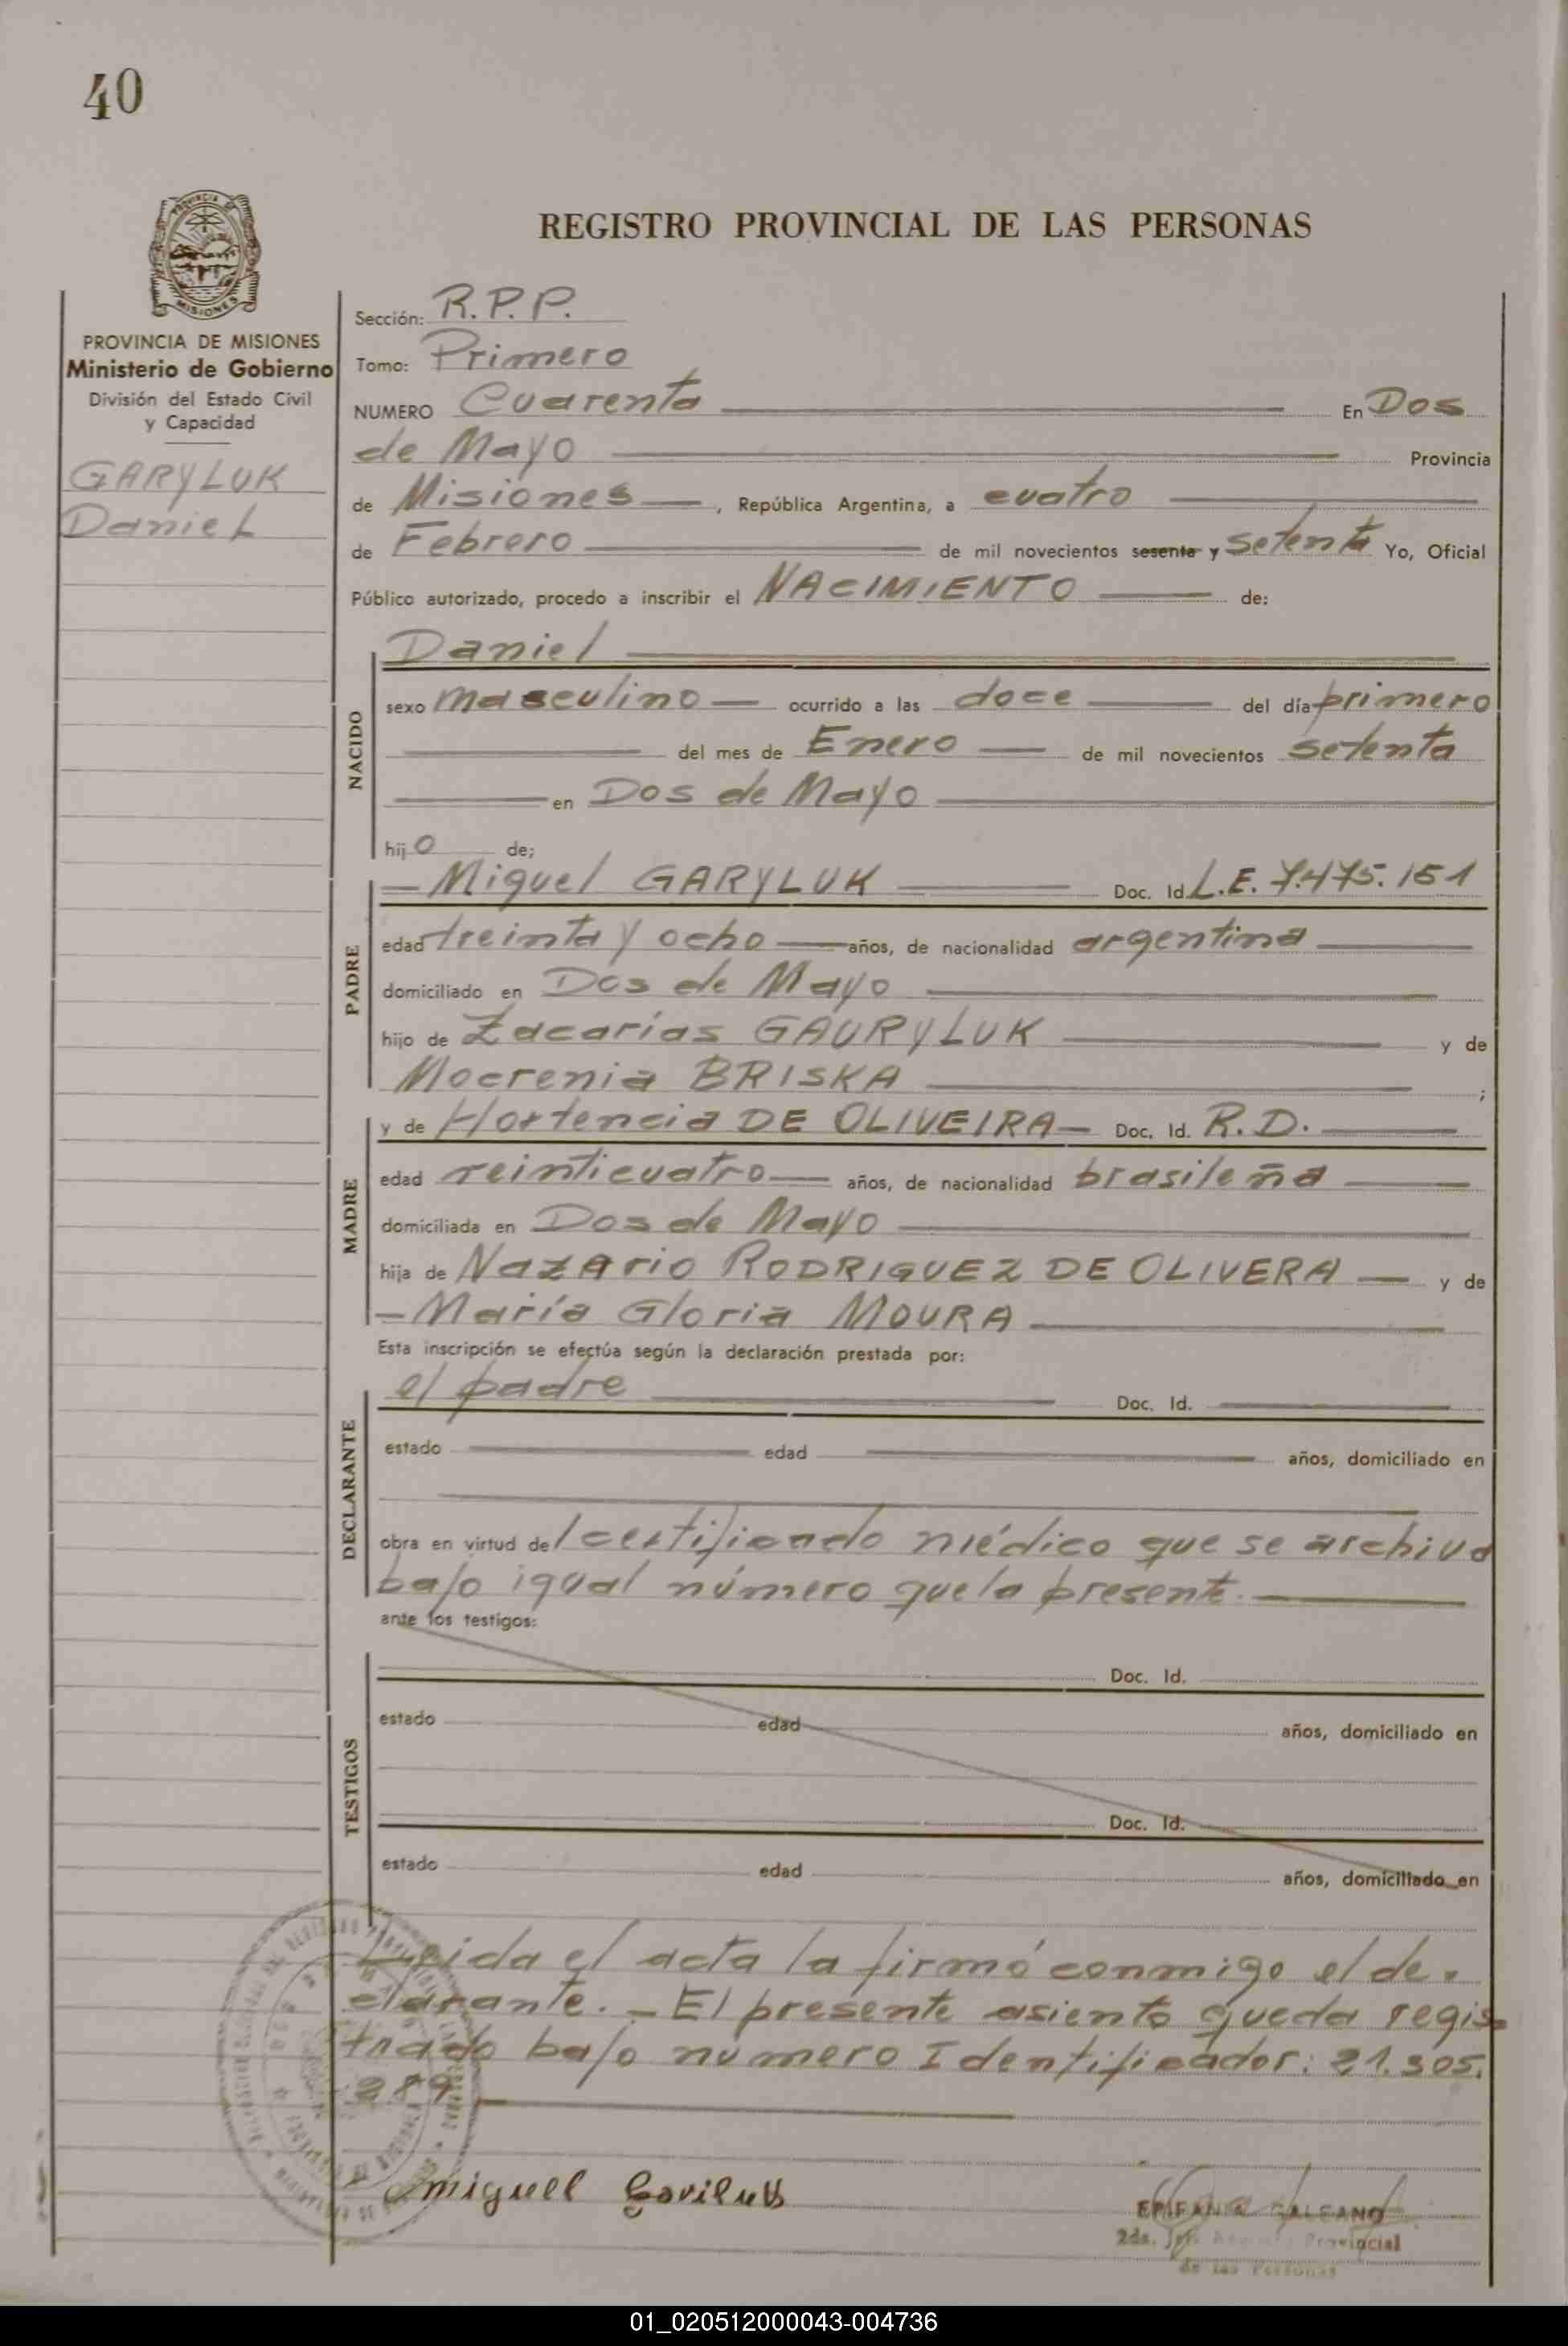 40
REGISTRO PROVINCIAL DE LAS PERSONAS
PROVINCIA DE MISIONES
Ministerio de Gobierno
División del Estado Civil
y Capacidad
GARYLUK
Daniel
Sección: R.P.P.
Tomo: Primero
NUMERO Cuarenta En Dos
de Mayo Provincia
de Misiones, República Argentina, a cuatro
de Febrero de mil novecientos sesenta y setenta Yo, Oficial
Público autorizado, procedo a inscribir el NACIMIENTO de:
NACIDO
Daniel
sexo masculino ocurrido a las doce del día primero
del mes de Enero de mil novecientos setenta
en Dos de Mayo
hijo de;
PADRE
Miguel GARYLUK Doc. Id. L.E. 7.475.151
edad treinta y ocho años, de nacionalidad argentina
domiciliado en Dos de Mayo
hijo de Zacarías GAURYLUK y de
Mocrenia BRISKA ;
MADRE
y de Hortencia DE OLIVEIRA Doc. Id. R.D.
edad veinticuatro años, de nacionalidad brasileña
domiciliada en Dos de Mayo
hija de Nazario RODRIGUEZ DE OLIVERA y de
María Gloria MOURA
Esta inscripción se efectúa según la declaración prestada por:
DECLARANTE
el padre Doc. Id.
estado edad años, domiciliado en
obra en virtud del certificado médico que se archiva
bajo igual número que la presente.
ante los testigos:
TESTIGOS
Doc. Id.
estado edad años, domiciliado en
Doc. Id.
estado edad años, domiciliado en
el acta la firmó conmigo el de-
clarante. - El presente asiento queda regis-
trado bajo numero Identificador: 21.305.
289
miguel Gariluk
EPIFANIO GALEANO
2do. Jefe Provincial
de las Personas
01_020512000043-004736